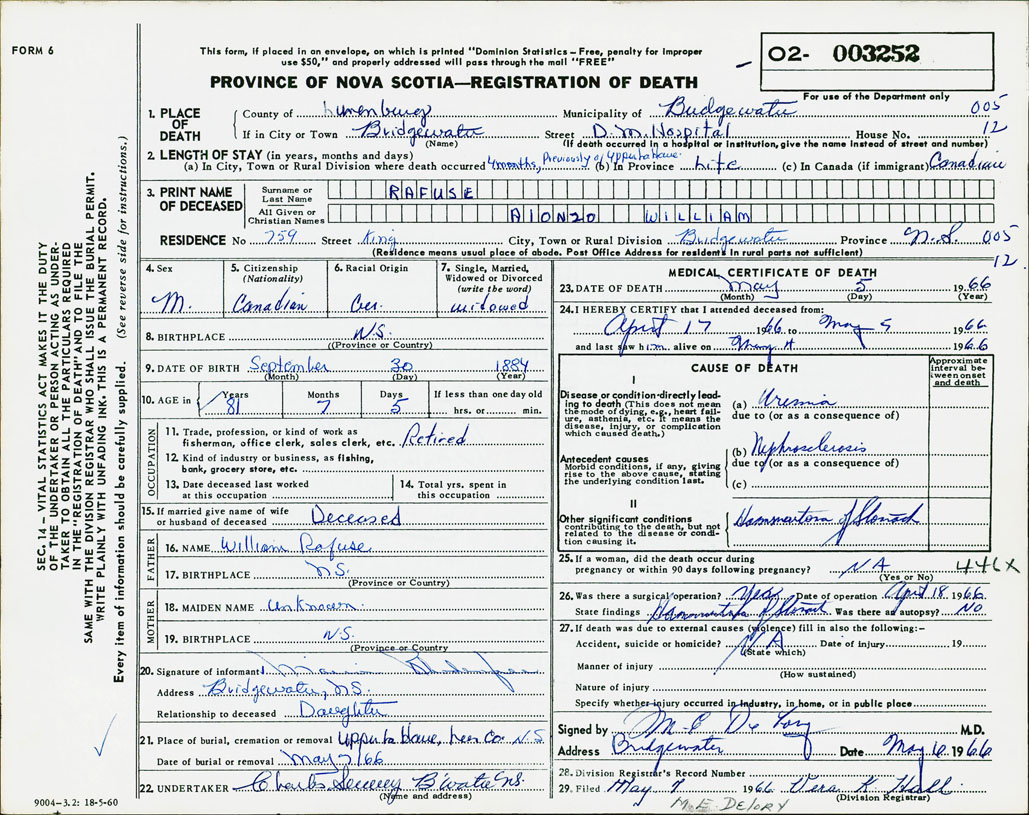 FORM 6
This form, if placed in an envelope, on which is printed "Dominion Statistics – Free, penalty for improper
use $50," and properly addressed will pass through the mail "FREE"
PROVINCE OF NOVA SCOTIA—REGISTRATION OF DEATH
02- 003252
For use of the Department only
1. PLACE OF DEATH
County of Lunenburg Municipality of Bridgewater 005
If in City or Town Bridgewater Street D.M. Hospital House No. 12
(Name) (If death occurred in a hospital or institution, give the name instead of street and number)
2. LENGTH OF STAY (in years, months and days)
(a) In City, Town or Rural Division where death occurred 4 months, Previously of (b) In Province Life (c) In Canada (if immigrant) Canadian
3. PRINT NAME OF DECEASED
Surname or Last Name RAFUSE
All Given or Christian Names AlONZO WILLIAM
RESIDENCE No 759 Street King City, Town or Rural Division Bridgewater Province N.S. 005
(Residence means usual place of abode. Post Office Address for residents in rural parts not sufficient) 12
4. Sex M.
5. Citizenship (Nationality) Canadian
6. Racial Origin Ger.
7. Single, Married, Widowed or Divorced (write the word) widowed
8. BIRTHPLACE N.S.
(Province or Country)
9. DATE OF BIRTH September 30 1884
(Month) (Day) (Year)
10. AGE in Years 81 Months 7 Days 5 If less than one day old hrs. or min.
OCCUPATION
11. Trade, profession, or kind of work as
fisherman, office clerk, sales clerk, etc. Retired
12. Kind of industry or business, as fishing,
bank, grocery store, etc.
13. Date deceased last worked
at this occupation
14. Total yrs. spent in
this occupation
15. If married give name of wife
or husband of deceased Deceased
FATHER
16. NAME William Rafuse
17. BIRTHPLACE N.S.
(Province or Country)
MOTHER
18. MAIDEN NAME Unknown
19. BIRTHPLACE N.S.
(Province or Country)
20. Signature of informant
Address Bridgewater, N.S.
Relationship to deceased Daughter
21. Place of burial, cremation or removal N.S
Date of burial or removal May 7/66
22. UNDERTAKER Charles B'water N.S.
(Name and address)
MEDICAL CERTIFICATE OF DEATH
23. DATE OF DEATH May 5 1966
(Month) (Day) (Year)
24. I HEREBY CERTIFY that I attended deceased from:
April 17 1966 to May 5 1966
and last saw him alive on May 4 1966
CAUSE OF DEATH
Approximate interval between onset and death
I
Disease or condition directly leading to death (This does not mean the mode of dying, e.g., heart failure, asthenia, etc. It means the disease, injury, or complication which caused death.)
(a) Uremia
due to (or as a consequence of)
Antecedent causes
Morbid conditions, if any, giving rise to the above cause, stating the underlying condition last.
(b) Nephrosclerosis
due to (or as a consequence of)
(c)
II
Other significant conditions contributing to the death, but not related to the disease or condition causing it.
Hammartoma of Stomach
25. If a woman, did the death occur during
pregnancy or within 90 days following pregnancy? NA 446X
(Yes or No)
26. Was there a surgical operation? Yes Date of operation April 18 1966
State findings Hammartoma of Stomach Was there an autopsy? NO
27. If death was due to external causes (violence) fill in also the following:–
Accident, suicide or homicide? NA Date of injury 19
(State which)
Manner of injury
(How sustained)
Nature of injury
Specify whether injury occurred in industry, in home, or in public place
Signed by M. E. DeLory M.D.
Address Bridgewater Date May 6 1966
28. Division Registrar's Record Number
29. Filed May 7 1966 Vera K. Hall
(Division Registrar)
M.E. DELORY
SEC. 14 – VITAL STATISTICS ACT MAKES IT THE DUTY
OF THE UNDERTAKER OR PERSON ACTING AS UNDER-
TAKER TO OBTAIN ALL THE PARTICULARS REQUIRED
IN THE "REGISTRATION OF DEATH" AND TO FILE THE
SAME WITH THE DIVISION REGISTRAR WHO SHALL ISSUE THE BURIAL PERMIT.
WRITE PLAINLY WITH UNFADING INK. THIS IS A PERMANENT RECORD.
Every item of information should be carefully supplied. (See reverse side for instructions.)
9004-3.2: 18-5-60